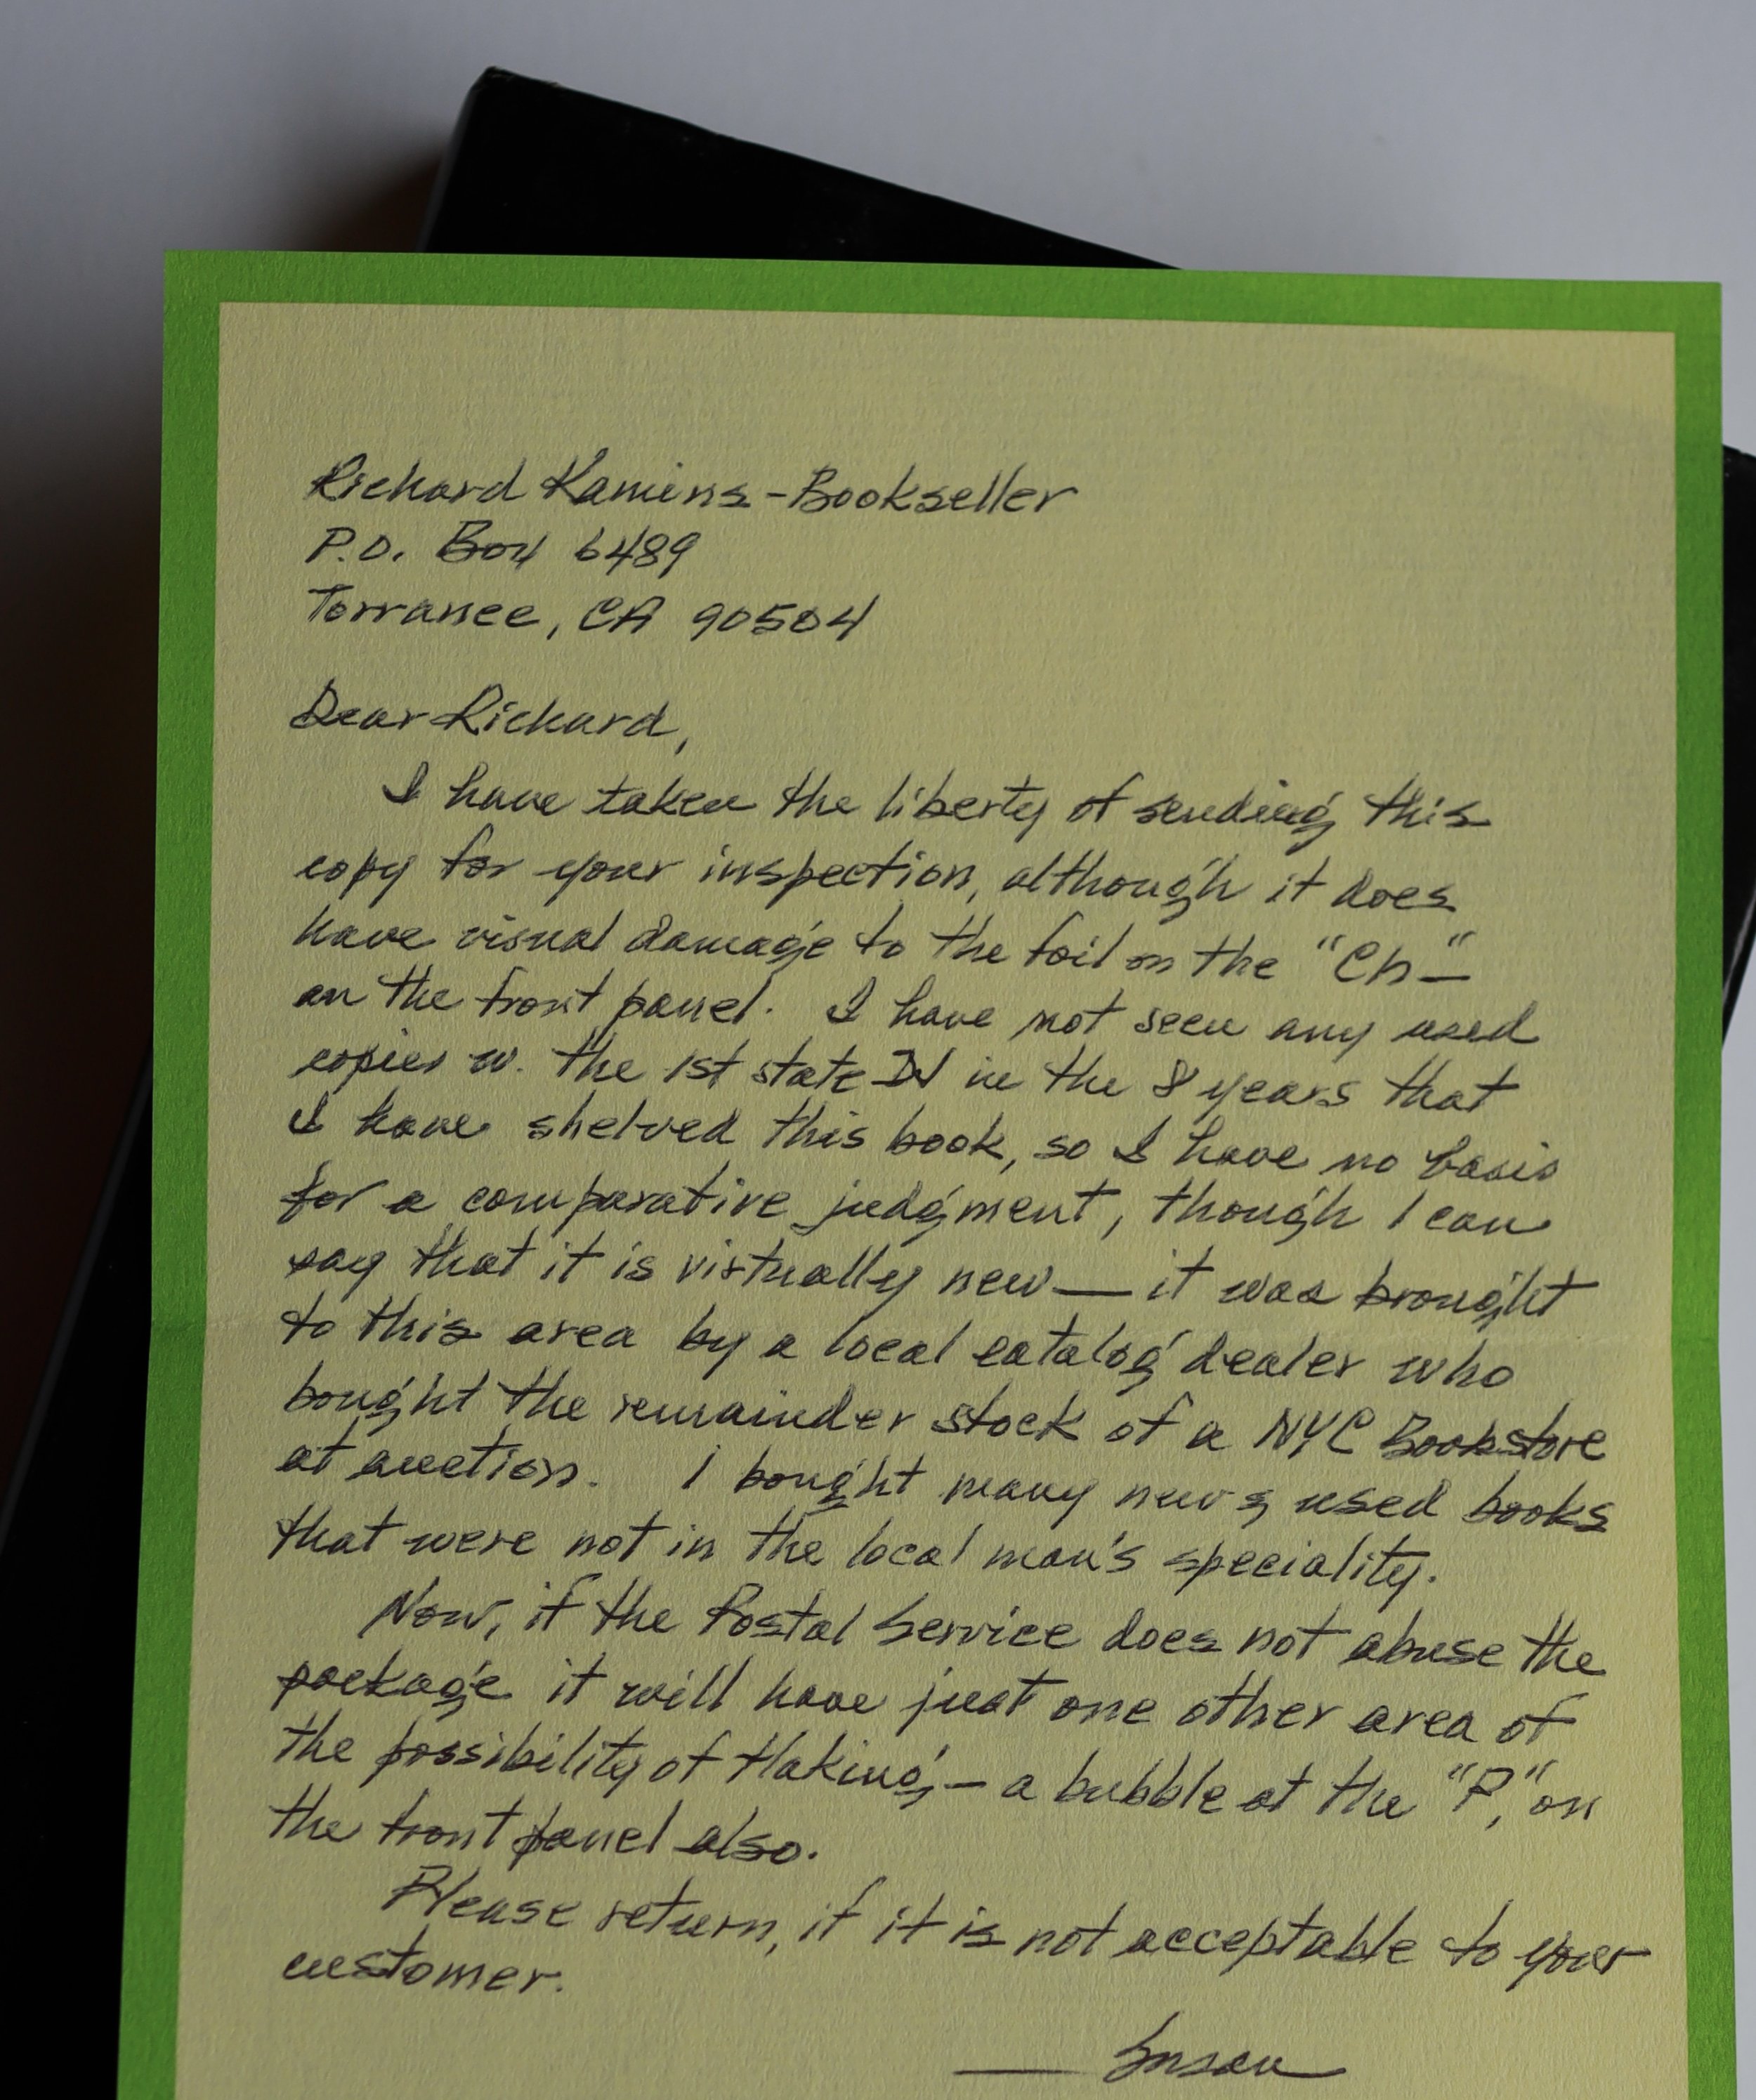 Richard Kamins-Bookseller
P.O. Box 6489
Torrance, CA 90504
Dear Richard,
I have taken the liberty of sending this
copy for your inspection, although it does
have visual damage to the foil on the "Ch-"
on the front panel. I have not seen any used
copies w. the 1st state DJ in the 8 years that
I have shelved this book, so I have no basis
for a comparative judgment, though I can
say that it is virtually new — it was brought
to this area by a local catalog dealer who
bought the remainder stock of a NYC Bookstore
at auction. I bought many new & used books
that were not in the local man's speciality.
Now, if the Postal Service does not abuse the
package it will have just one other area of
the possibility of flaking, — a bubble at the "P," on
the front panel also.
Please return, if it is not acceptable to your
customer.
— Susan